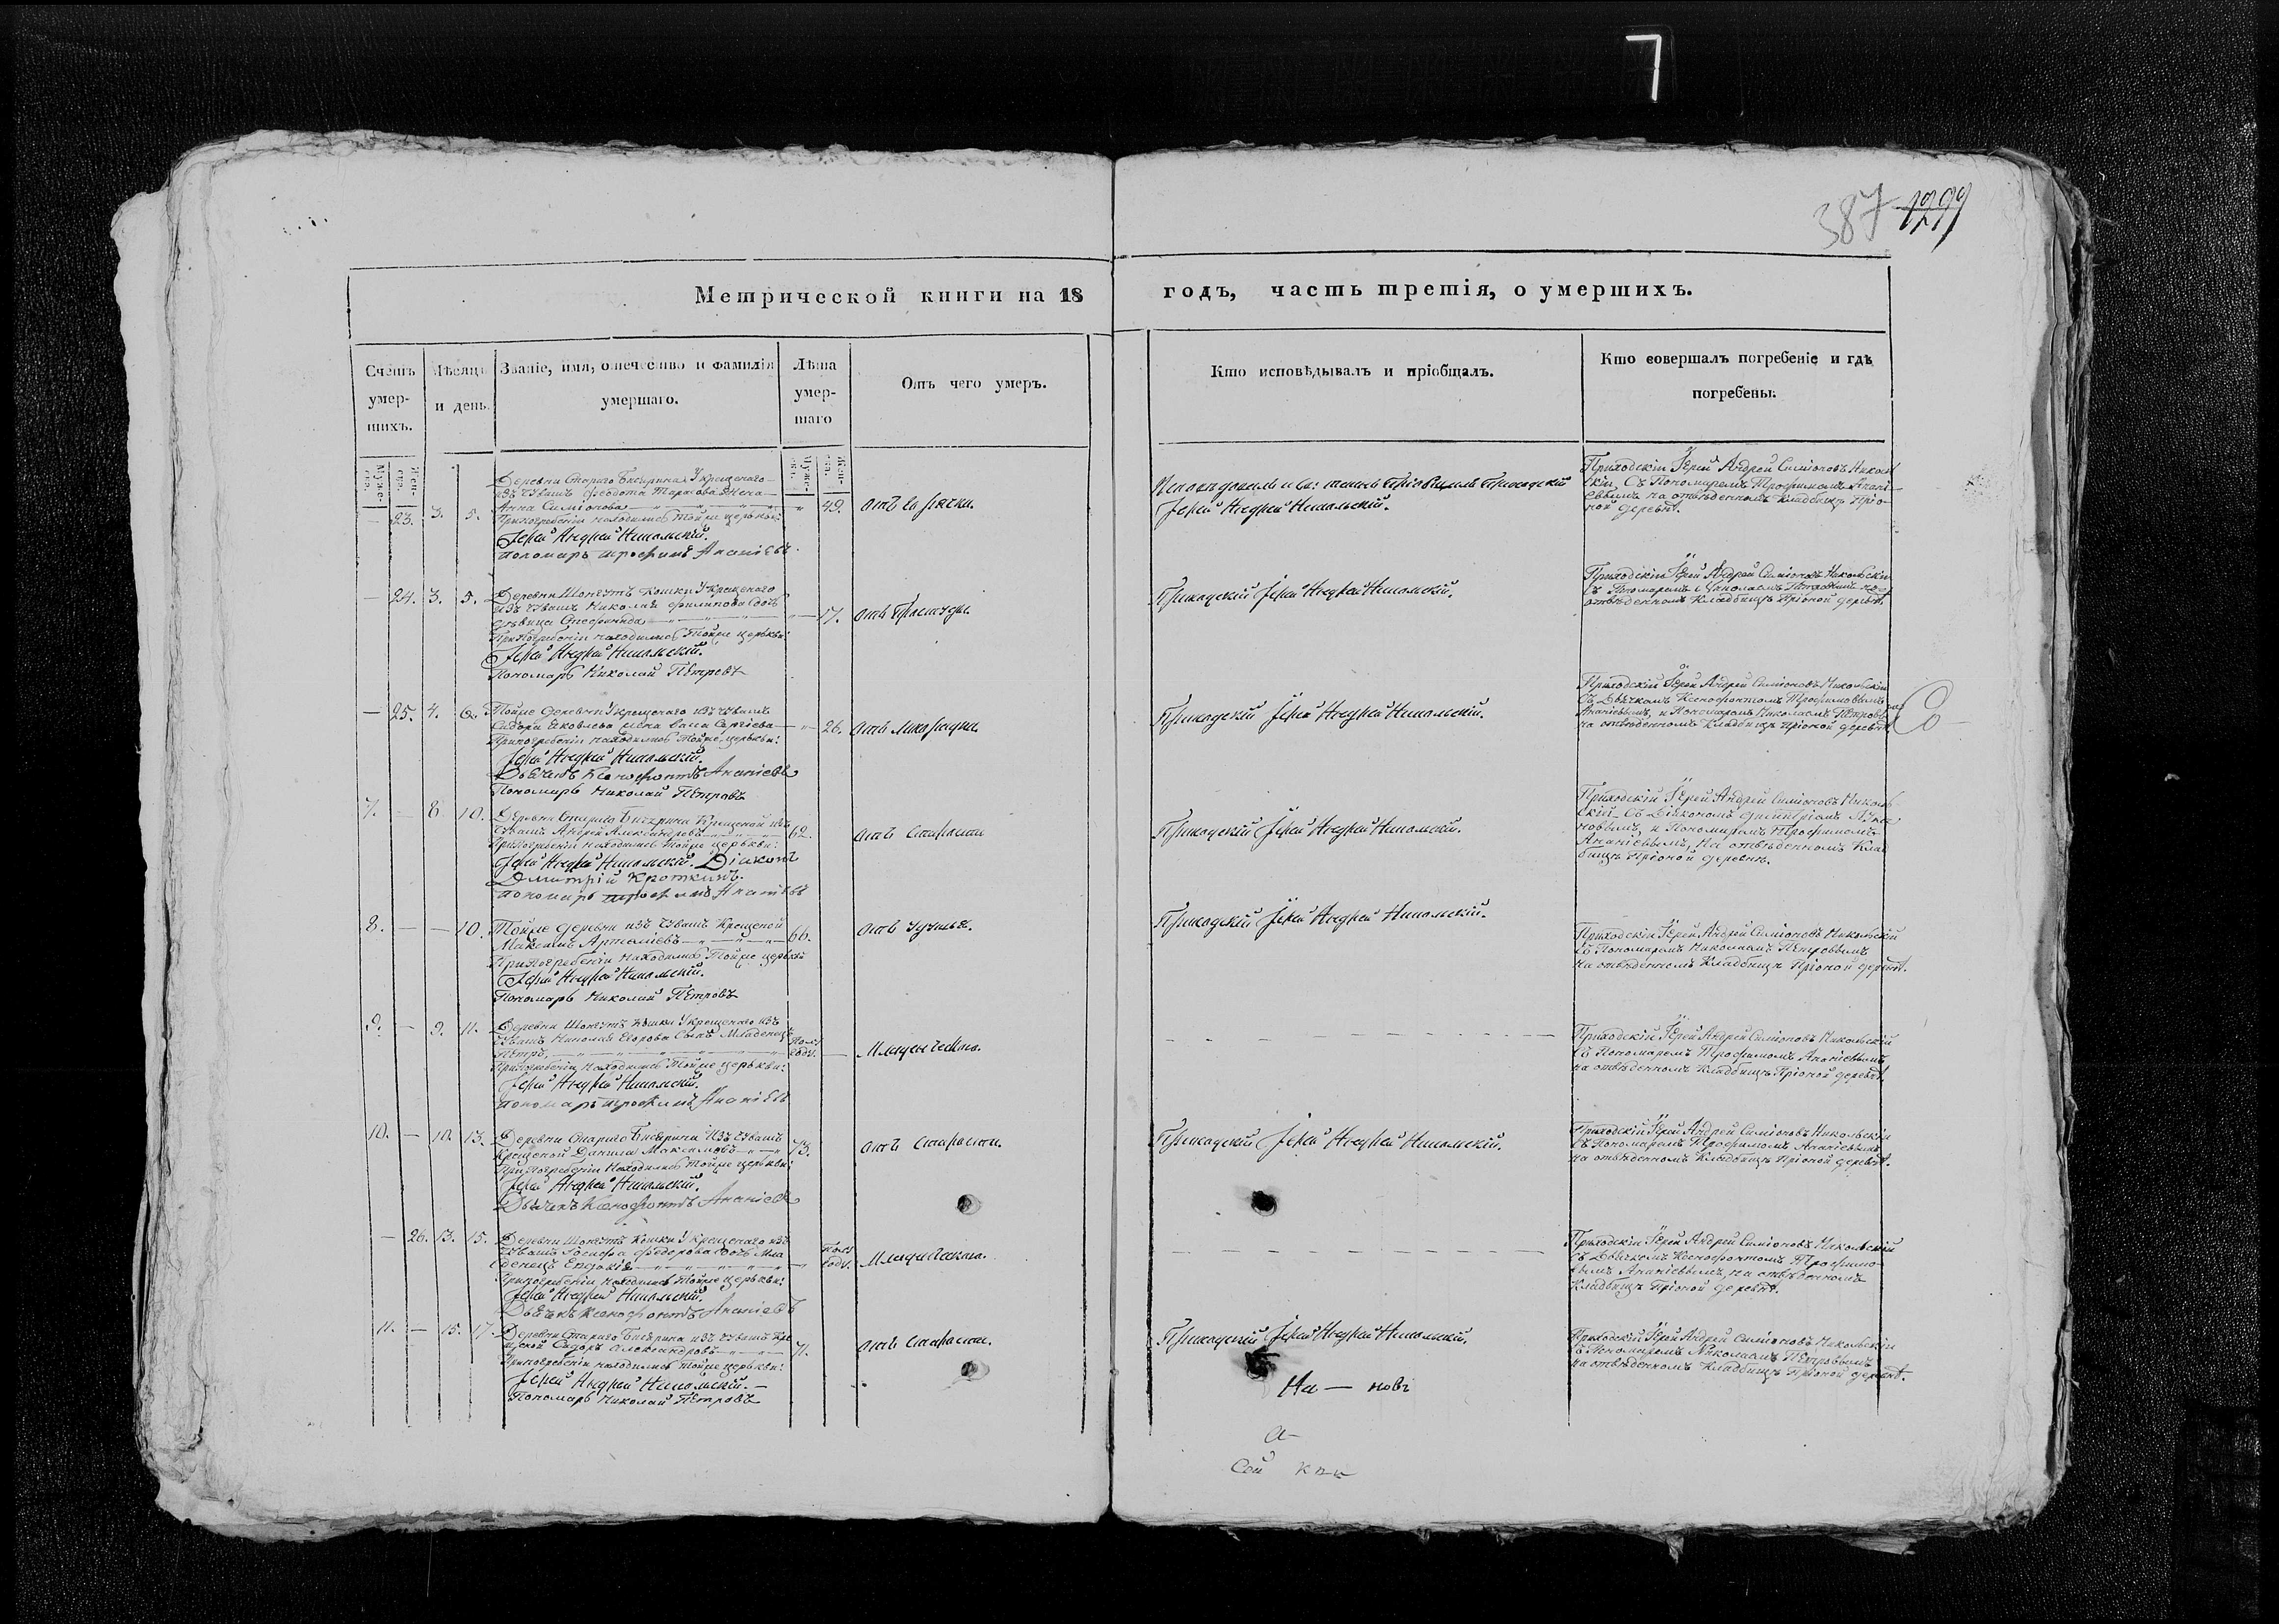 7
387 1299
Метрической книги на 18 годъ, часть третія, о умершихъ.
Счетъ умер-шихъ.
Мѣсяцъ и день.
Званіе, имя, отечество и фамилія умершаго.
Лѣта умер-шаго
Отъ чего умеръ.
Кто исповѣдывалъ и пріобщалъ.
Кто совершалъ погребеніе и гдѣ погребены.
Муже-ска.
Жен-ска.
Муже-ска.
Жен-ска.
Деревни Стараго
изъ чувашъ Федота Тарасова жена
— 23. 3. 5. Анна Симіонова — „ 49. отъ горячки.
При погребеніи находились Тойже церькви:
Іерей Андрей Никольскій.
пономарь Трофимъ Ананіевъ
Приходскій
Іерей Андрей Никольскій.
Приходскій Іерей Андрей Симіоновъ Николь
скій, Съ Пономаремъ Трофимомъ Анані
евымъ на отведенномъ кладбищѣ
деревнѣ.
— 24. 3. 5. Деревни Кошки
изъ чувашъ Николая Филипова дочь
дѣвица — 17. отъ Простуды
При погребеніи находились Тойже церькви:
Іерей Андрей Никольскій.
Пономарь Николай Петровъ
Приходскій Іерей Андрей Никольскій.
Приходскій Іерей Андрей Симіоновъ Никольскій
Съ Пономаремъ Николаемъ Петровымъ на
отведенномъ кладбищѣ деревнѣ.
— 25. 4. 6. Тойже деревни изъ чувашъ
Сидора Яковлева жена Сергіева — „ 26. отъ лихорадки
При погребеніи находились Тойже церькви:
Іерей Андрей Никольскій.
Дьячекъ Ксенофонтъ Ананіевъ
Пономарь Николай Петровъ
Приходскій Іерей Андрей Никольскій.
Приходскій Іерей Андрей Симіоновъ Никольскій
Съ Дьячкомъ Ксенофонтомъ Трофимовымъ
Ананіевымъ, и Пономаремъ Николаемъ Петровы
на отведенномъ кладбищѣ деревнѣ
7. — 8 10. Деревни Стараго Крещеной изъ
чувашъ Андрей Александровъ — 62. отъ Старости
При погребеніи находились Тойже церькви:
Іерей Андрей Никольскій. Діаконъ
Димитрій Кроткинъ.
пономарь Трофимъ Ананіевъ
Приходскій Іерей Андрей Никольскій.
Приходскій Іерей Андрей Симіоновъ Николь
скій Съ Діякономъ Димитріемъ
и Пономаремъ Трофимомъ
Ананіевымъ, на отведенномъ Клад
бищѣ деревнѣ.
8. — — 10. Тойже деревни изъ чувашъ Крещеной
Максимъ — 66. отъ удушья.
При погребеніи находились Тойже церькви
Іерей Андрей Никольскій.
Пономарь Николай Петровъ
Приходскій Іерей Андрей Никольскій.
Приходскій Іерей Андрей Симіоновъ Никольскій
Съ Пономаремъ Николаемъ Петровымъ
на отведенномъ Кладбищѣ деревнѣ.
9. — 9. 11. Деревни Кошки изъ
чувашъ Николая Егорова Сынъ Младенецъ
Петръ, — Пол году. — Младенческою.
При погребеніи находились Тойже церькви:
Іерей Андрей Никольскій.
пономарь Трофимъ Ананіевъ
Приходскій Іерей Андрей Симіоновъ Никольскій
Съ Пономаремъ Трофимомъ Ананіевымъ
на отведенномъ Кладбищѣ деревнѣ.
10. — 10. 13. Деревни Стараго изъ чувашъ
Крещеной Данила Максимовъ — 73. отъ Старости.
При погребеніи находились Тойже церькви:
Іерей Андрей Никольскій.
Дьячекъ Ксенофонтъ Ананіевъ
Приходскій Іерей Андрей Никольскій.
Приходскій Іерей Андрей Симіоновъ Никольскій
Съ Пономаремъ Трофимомъ Ананіевымъ
на отведенномъ Кладбищѣ деревнѣ.
— 26. 13. 15. Деревни Кошки изъ
чувашъ Федорова дочь Мла
денецъ Евдокія — пол году. Младенческою.
При погребеніи находились Тойже церькви:
Іерей Андрей Никольскій.
Дьячекъ Ксенофонтъ Ананіевъ
Приходскій Іерей Андрей Симіоновъ Никольскій
Съ Дьячкомъ Ксенофонтомъ Трофимо-
вымъ Ананіевымъ, на отведенномъ
Кладбищѣ деревнѣ.
11. — 15. 17. Деревни Стараго изъ чувашъ Кре
щеной Сидоръ Александровъ — 71. отъ Старости.
При погребеніи находились Тойже церькви:
Іерей Андрей Никольскій. —
Пономарь Николай Петровъ
Приходскій Іерей Андрей Никольскій.
Приходскій Іерей Андрей Симіоновъ Никольскій
Съ Пономаремъ Николаемъ Петровымъ
на отведенномъ Кладбищѣ деревнѣ.
На — новѣ
а-
Сей